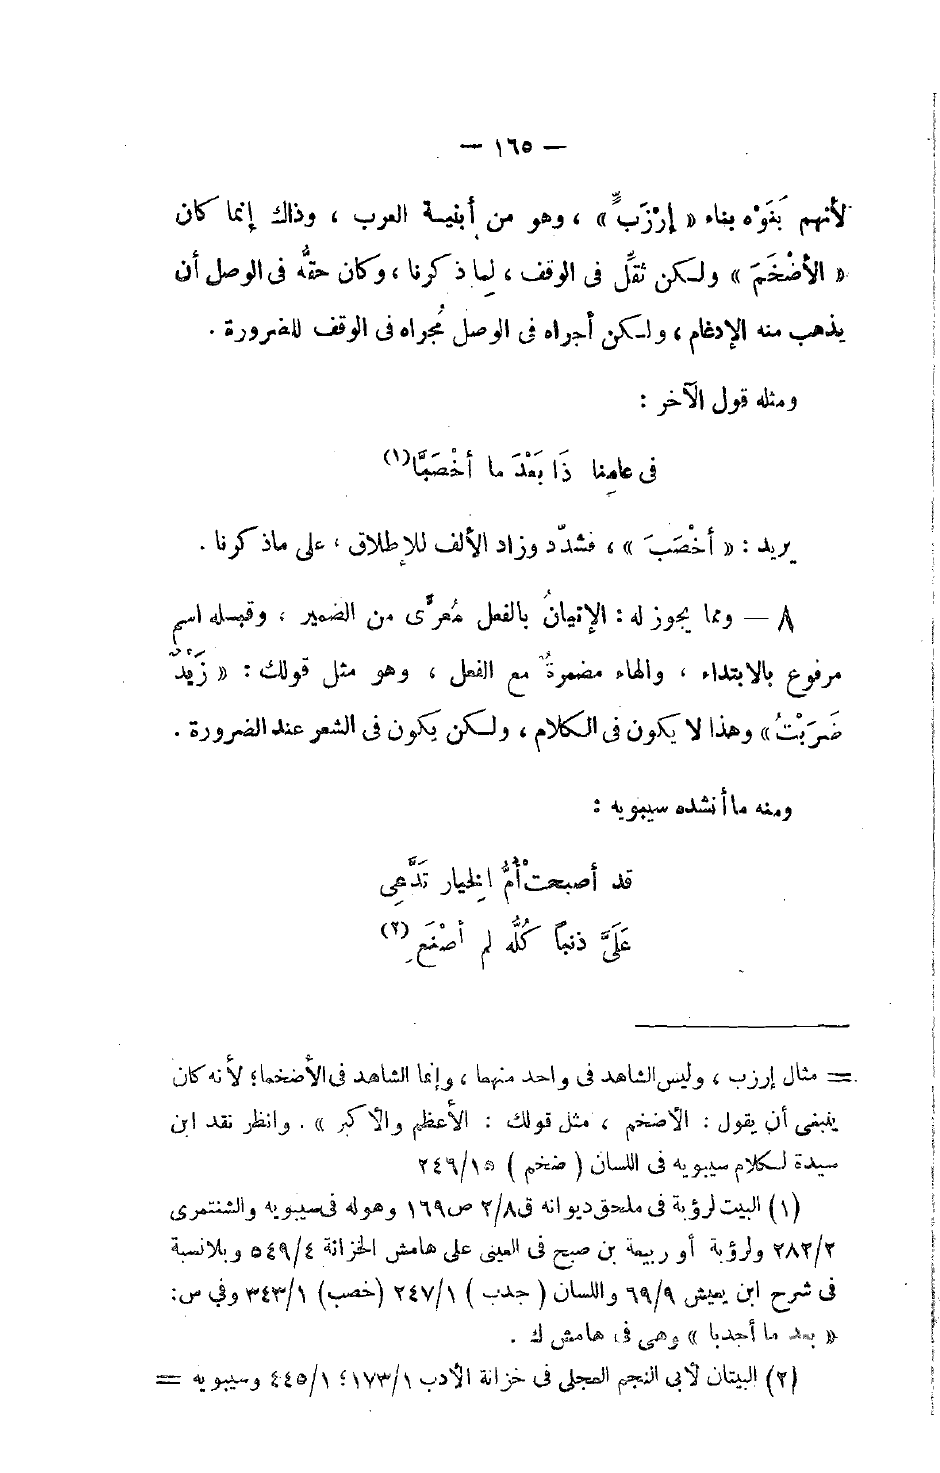 — ١٦٥ —
لأنهم بَنَوْه بناء « إِرْزَبٍّ » ، وهو من أبنية العرب ، وذلك إنما كان
« الأَضْخَمَ » ولكن ثقَّل فى الوقف ، لِما ذكرنا ، وكان حقُّه فى الوصل أن
يذهب منه الإدغام ، ولكن أجراه فى الوصل مُجراه فى الوقف للضرورة .
ومثله قول الآخر :
فى عامِنا ذَا بَعْدَ ما أَخْصَبَّا (١)
يريد : « أَخْصَبَ » ، فشدّد وزاد الألف للإطلاق ، على ماذكرنا .
٨ — ومما يجوز له : الإتيانُ بالفعل مُعرًّى من الضمير ، وقبله اسم
مرفوع بالابتداء ، والهاء مضمرةٌ مع الفعل ، وهو مثل قولك : « زَيْدٌ
ضَرَبْتُ » وهذا لا يكون فى الكلام ، ولكن يكون فى الشعر عند الضرورة .
ومنه ما أنشده سيبويه :
قد أصبحتْ أُمُّ الخِيار تَدَّعِى
عَلَىَّ ذنباً كُلُّه لم أَصْنَعِ (٢)
= مثال إرزب ، وليس الشاهد فى واحد منهما ، وإنما الشاهد فى الأضخما ؛ لأنه كان
ينبغى أن يقول : الأضخم ، مثل قولك : الأعظم والأكبر » . وانظر نقد ابن
سيدة لكلام سيبويه فى اللسان ( ضخم ) ١٥/٢٤٦
(١) البيت لرؤبة فى ملحق ديوانه ق٢/٨ ص١٦٩ وهو له فى سيبويه والشنتمرى
٢٨٢/٢ ولرؤبة أو ربيعة بن صبح فى العينى على هامش الخزانة ٥٤٩/٤ وبلا نسبة
فى شرح ابن يعيش ٦٩/٩ واللسان ( جدب ) ٢٤٧/١ (خصب) ٣٤٣/١ وفي س :
« بعد ما أجدبا » وهى فى هامش ك .
(٢) البيتان لأبى النجم العجلى فى خزانة الأدب ١٧٣/١ ؛ ٤٤٥/١ وسيبويه =